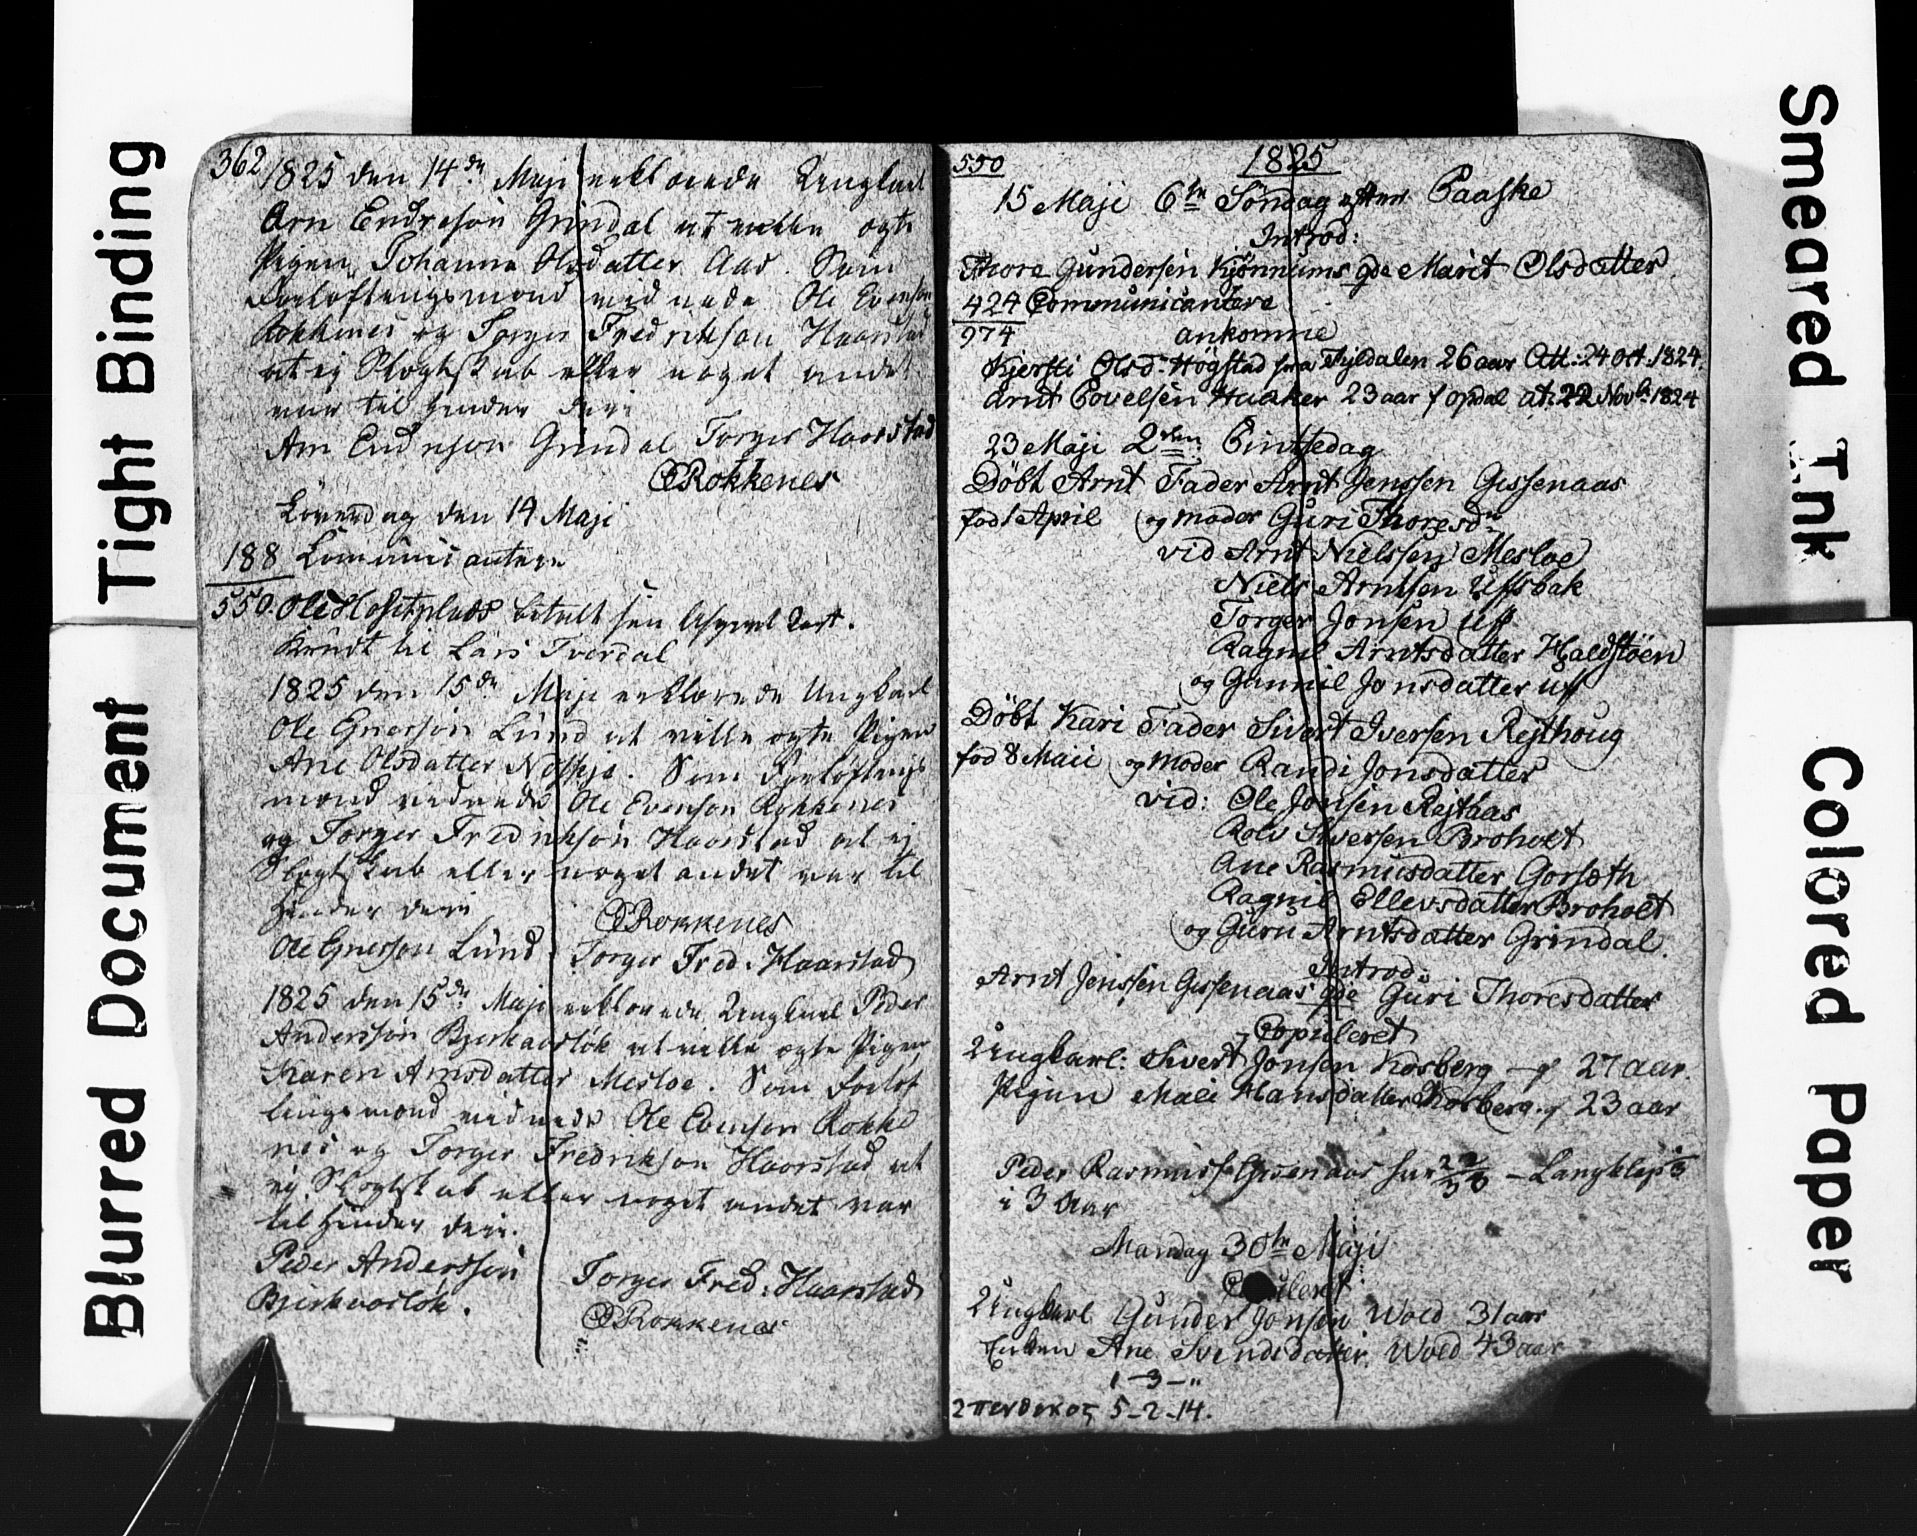 Tight Binding
Blurred Document
Smeared Ink
Colored Paper
362
1825 den 14de Maji erklærede Ungkarl
Arn Endreson Grindal at ville ægte
Pigen Johanna Olsdatter Aas. Som
Forloftningsmænd vidnede Ole Evenson
Rokkenes og Torger Fredrikson Haarstad
at ej Slægtskab eller noget andet
var til Hinder deri
Arn Endreson Grindal Torger Haarstad
OERokkenes
Löverdag den 14 Maji
188 Communicantere
550. Ole betalt sin
Krudt til Lars Tverdal
1825 den 15de Maji erklærede Ungkarl
Ole Lund at ville ægte Pigen
Ane Olsdatter. Som Forloftnings
mænd vidnede Ole Evenson Rokkenes
og Torger Fredrikson Haarstad at ej
Slægtskab eller noget andet var til
Hinder deri
OERokkenes
Ole Lund. Torger Fred: Haarstad
1825 den 15de Maji erklærede Ungkarl Peder
Andersson Bjerkaasløk at ville ægte Pigen
Karen Arnsdatter Mesloe. Som Forlof
tnings mænd vidnede Ole Evenson Rokke
nes og Torger Fredrikson Haarstad at
ej Slægtskab eller noget andet var
til Hinder deri.
Peder Andersson
Bjerkaasløk.
Torger Fred: Haarstad
OERokkenes
550
1825
15 Maji 6te Søndag efter Paaske
Introd:
Thore Gundersen Kjönnums qde Marit Olsdatter
424 Communicantere
974
ankomne
Kjersti Olsd. Högstad fra Tyldalen 26 aar Att: 24 oct: 1824.
Arnt Povelsen Haaker 23 aar f opdal at: 22 Novb: 1824
23 Maji 2den Pintsedag
Döbt Arnt Fader Arnt Jenssen Gissenaas
fød 1 April og moder Guri Thoresdr
vid Arnt Nielssen Mesloe
Niels Arntsen Uffsbak
Torger Jonsen Uff
Ragnil Arntsdatter Haldstöen
og Gunnil Jonsdatter Uff
Döbt Kari Fader Sivert Iversen Rejthoug
fød 8 Maii og Moder Randi Jonsdatter
vid: Ole Jonsen Rejtaas
Rolv Siversen Broholt
Ane Rasmusdatter Gorsæth
Ragnil Ellevsdatter Broholt
og Guru Arntsdatter Grindal
Introd:
Arnt Jenssen Gissenaas qde Guri Thoresdatter
Copuleret
Ungkarl: Sivert Jonsen Kosberg 27 aar.
Pigen Mali Hansdatter Kosberg 23 aar
Peder Rasmuss. Gisenaas har
i 3 Aar
Mandag 30te Maji
Ungkarl Gunder Jonsen Wold 31 aar
Enken Ane Svendsdatter Wold 43 aar
1-3-"
2 πενθεκος 5-2-14.